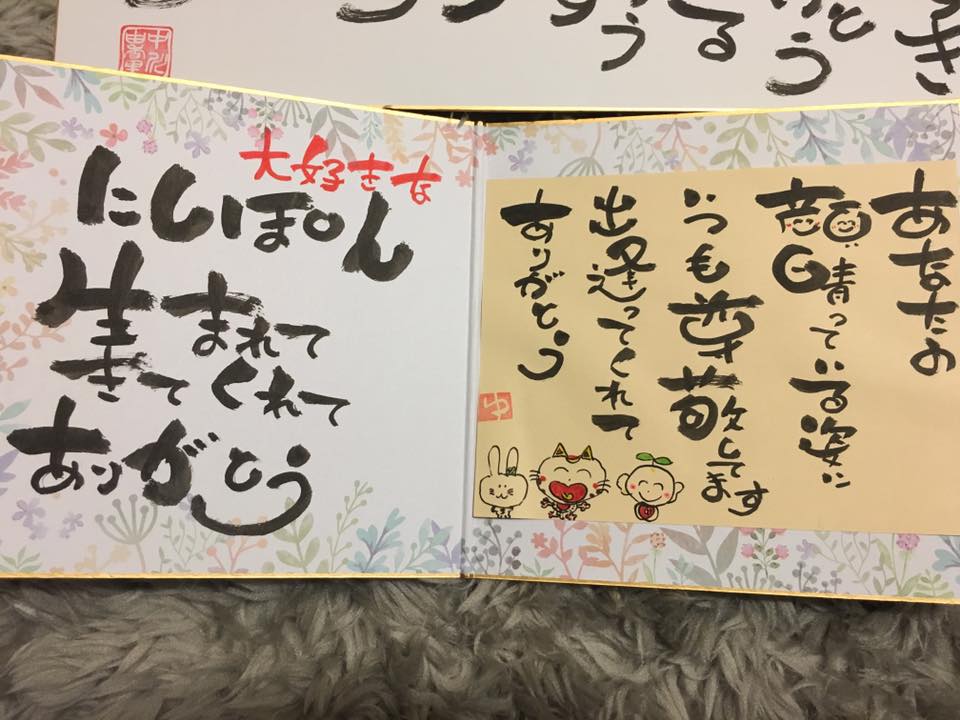 大好きな
にしぽん
生まれて
きてくれて
ありがとう
あなたの
顔晴っている姿に
いつも尊敬してます
出逢ってくれて
ありがとう
ゆ